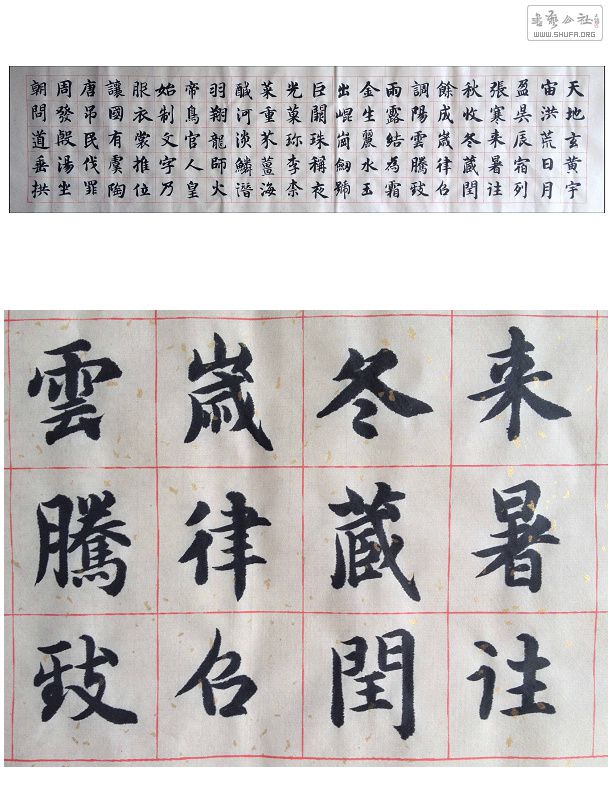 書藝公社
WWW.SHUFA.ORG
天地玄黄宇
宙洪荒日月
盈昃辰宿列
張寒来暑往
秋收冬蔵閏
餘成歲律召
調陽雲騰致
雨露結為霜
金生麗水玉
出崐崗劒號
巨闕珠稱夜
光菓珎李柰
菜重芥薑海
醎河淡鱗潛
羽翔龍師火
帝鳥官人皇
始制文字乃
服衣裳推位
讓國有虞陶
唐吊民伐罪
周發殷湯坐
朝問道垂拱
来暑往
冬蔵閏
歲律召
雲騰致